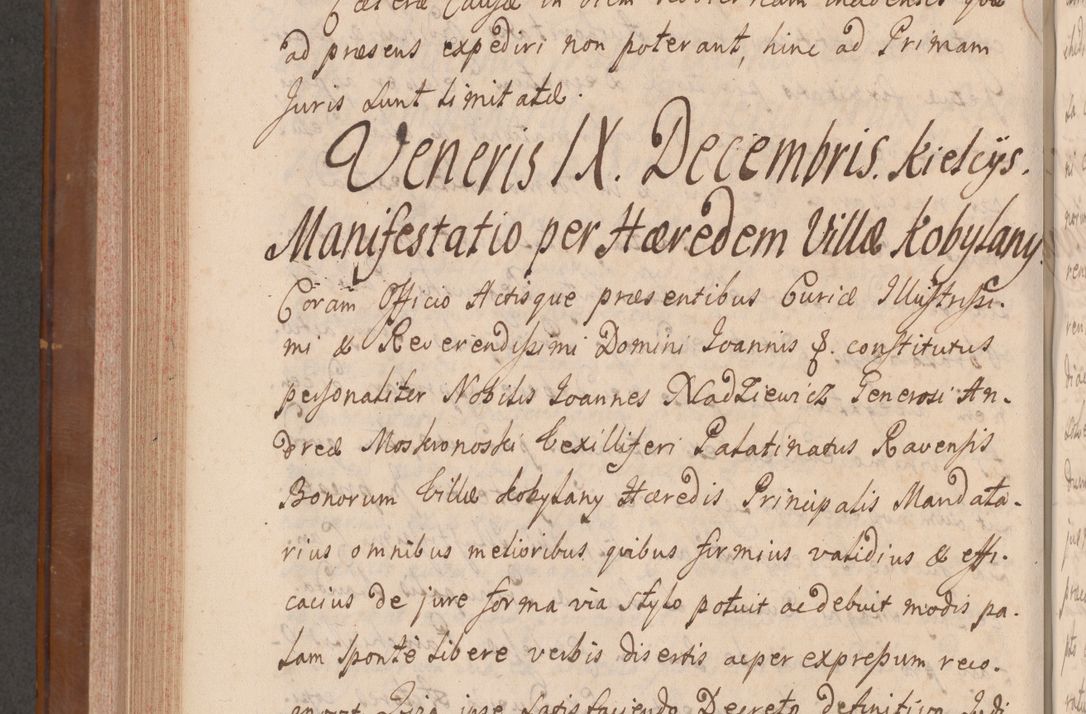 Cæteræ Causæ in
ad præsens expediri non poterant, hinc ad Primam
Juris sunt limitatæ.
Veneris IX. Decembris. Kielcÿs.
Manifestatio per Hæredem Villæ Kobylany.
Coram Officio Actisque præsentibus Curiæ Illustrissi-
mi & Reverendissimi Domini Joannis &. constitutus
personaliter Nobilis Joannes Nadziewicz Generosi An-
dreæ Moskronoski Vexilliferi Palatinatus Ravensis
Bonorum Villæ Kobylany Hæredis Principalis Mandata-
rius omnibus melioribus quibus firmius validius & effi-
cacius de jure forma via stylo potuit ac debuit modis pa-
lam sponte libere verbis disertis ac per expressum reco-
ipse satisfaciendo Decreto definitivo Judi